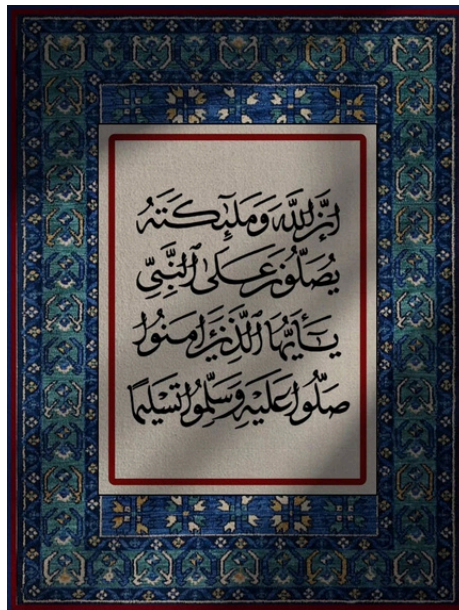 إن الله وملٰٓئكته
يصلون على ٱلنبي
يٰٓأيها ٱلذين ءامنوا
صلوا عليه وسلموا تسليما